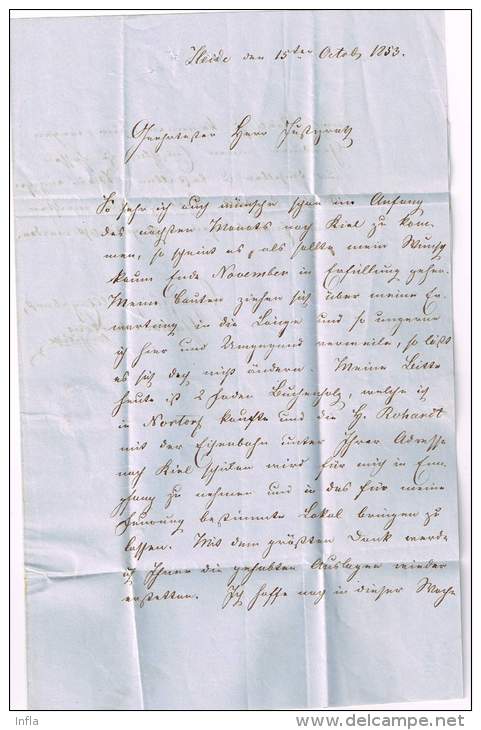 Heide den 15ten Octob. 1853.
Geehrtester Herr Justizrath
So sehr ich auch wünsche schon im Anfang
des nächsten Monats nach Kiel zu kom-
men, so scheint es, als sollte mein Wunsch
kaum Ende November in Erfüllung gehen.
Meine Bauten ziehen sich über meine Er-
wartung in die Länge und so ungerne
ich hier und Umgegend verweile, so läßt
es sich doch nicht ändern. Meine Bitte
heute ist 2 Faden Buchenholz, welche ich
in Nortorf kaufte und die H. Rohardt
mit der Eisenbahn unter Ihrer Adresse
nach Kiel schicken wird für mich in Em-
pfang zu nehmen und in das für meine
Feurung bestimmte Lokal bringen zu
lassen. Mit dem größten Dank werde
ich Ihnen die gehabten Auslagen wieder
erstatten. Ich hoffe noch in dieser Woche
Infla
www.delcampe.net